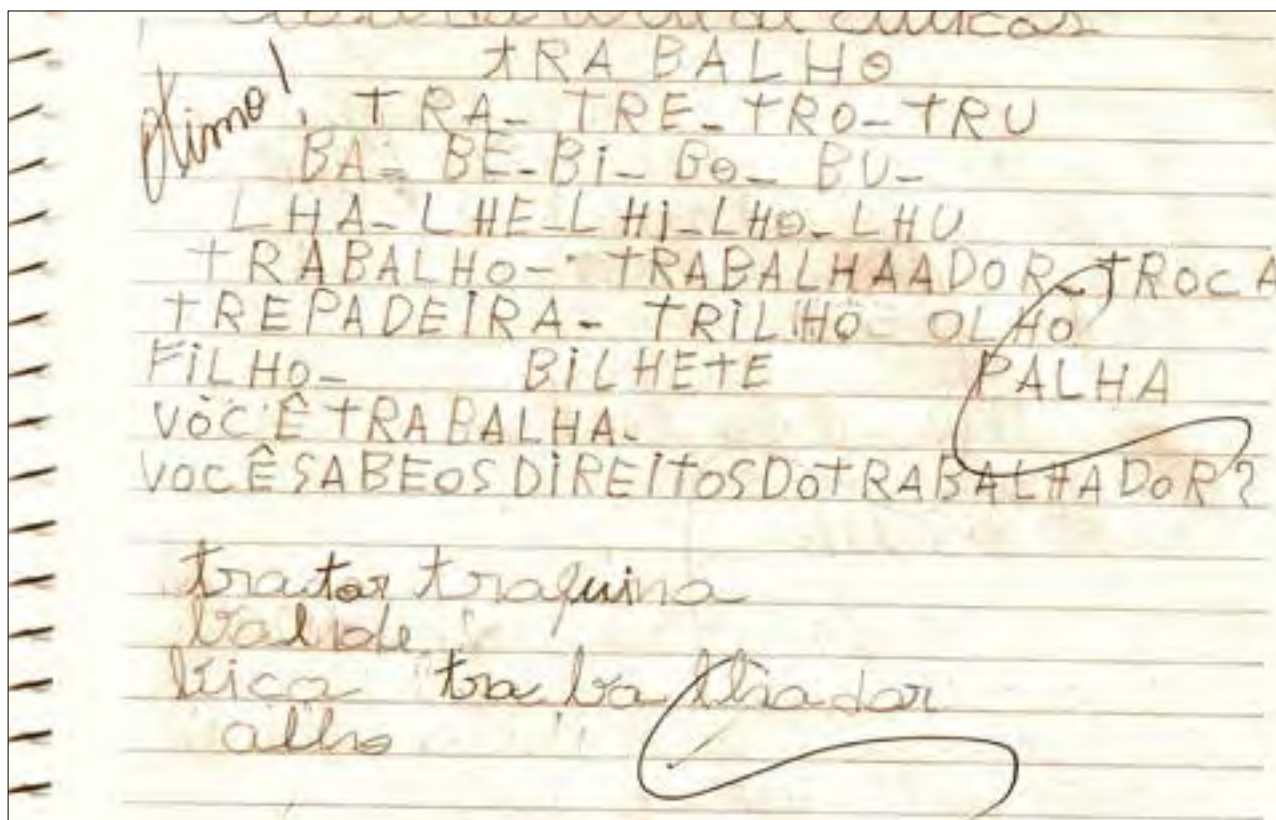 TRABALHO
ótimo! TRA- TRE- TRO- TRU
BA- BE- Bi- BO- BU-
LHA- LHE- LHi- LHO- LHU
TRABALHO- TRABALHAADOR- TROCA
TREPADEIRA- TRiLHO OLHO
FiLHO- BiLHETE PALHA
VOCÊ TRABALHA-
VOCÊSABEOSDiREiTOSDOTRABALHADOR?
trator traquina
balde
bica trabalhador
alho